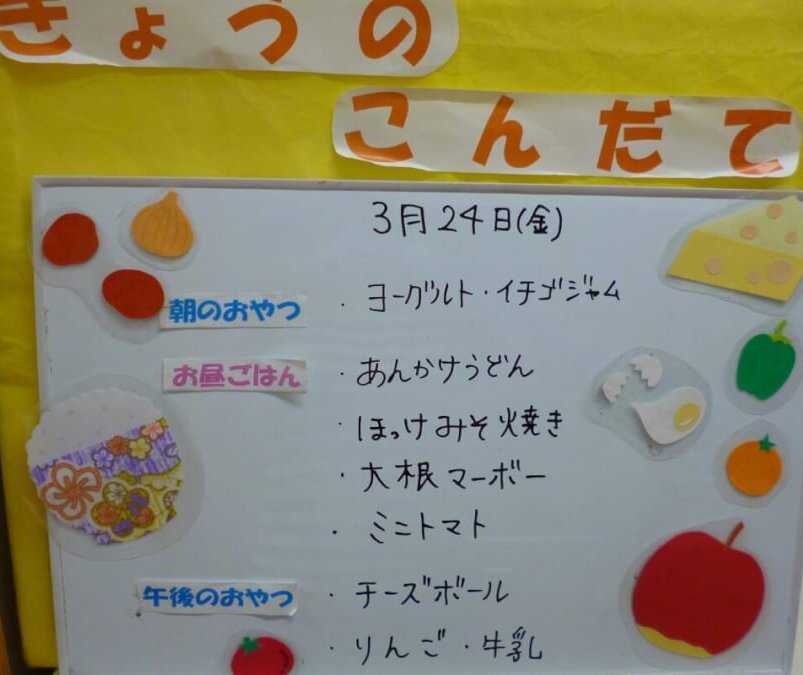 きょうの
こんだて
3月24日(金)
朝のおやつ ・ヨーグルト・イチゴジャム
お昼ごはん ・あんかけうどん
・ほっけみそ焼き
・大根マーボー
・ミニトマト
午後のおやつ ・チーズボール
・りんご・牛乳